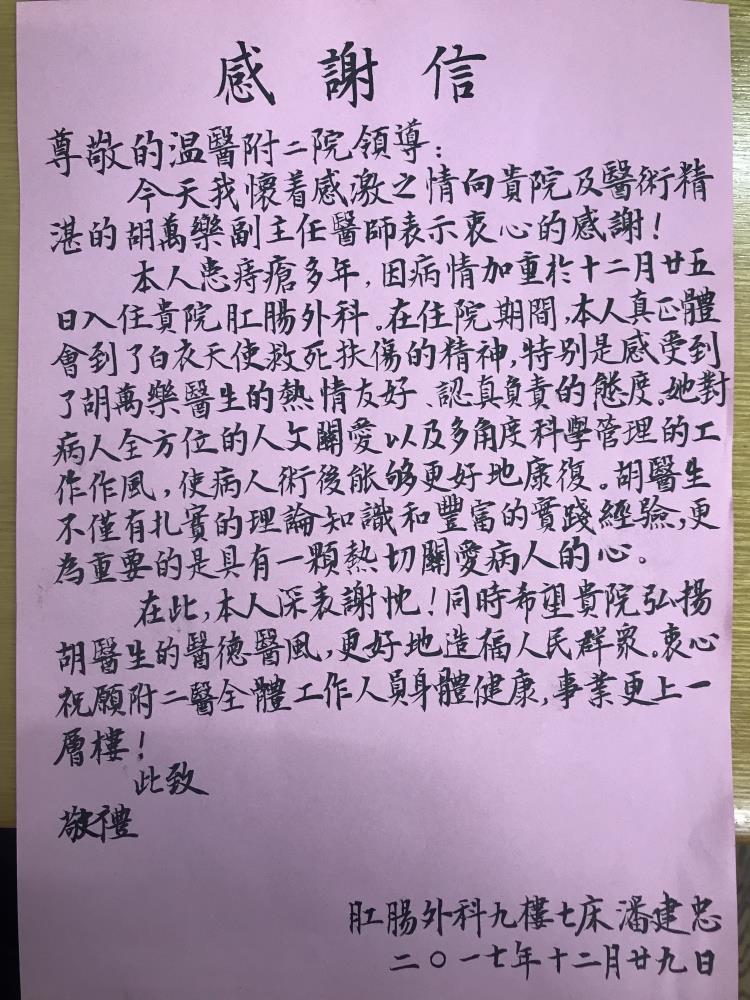 感謝信
尊敬的温醫附二院領導:
今天我懷着感激之情向貴院及醫術精
湛的胡萬樂副主任醫師表示衷心的感謝!
本人患痔瘡多年,因病情加重於十二月廿五
日入住貴院肛腸外科。在住院期間,本人真正體
會到了白衣天使救死扶傷的精神,特别是感受到
了胡萬樂醫生的熱情友好、認真負責的態度。她對
病人全方位的人文關愛以及多角度科學管理的工
作作風,使病人術後能够更好地康復。胡醫生
不僅有扎實的理論知識和豐富的實踐經驗,更
為重要的是具有一顆熱切關愛病人的心。
在此,本人深表謝忱!同時希望貴院弘揚
胡醫生的醫德醫風,更好地造福人民群眾。衷心
祝願附二醫全體工作人員身體健康,事業更上一
層樓!
此致
敬禮
肛腸外科九樓七床潘建忠
二〇一七年十二月廿九日